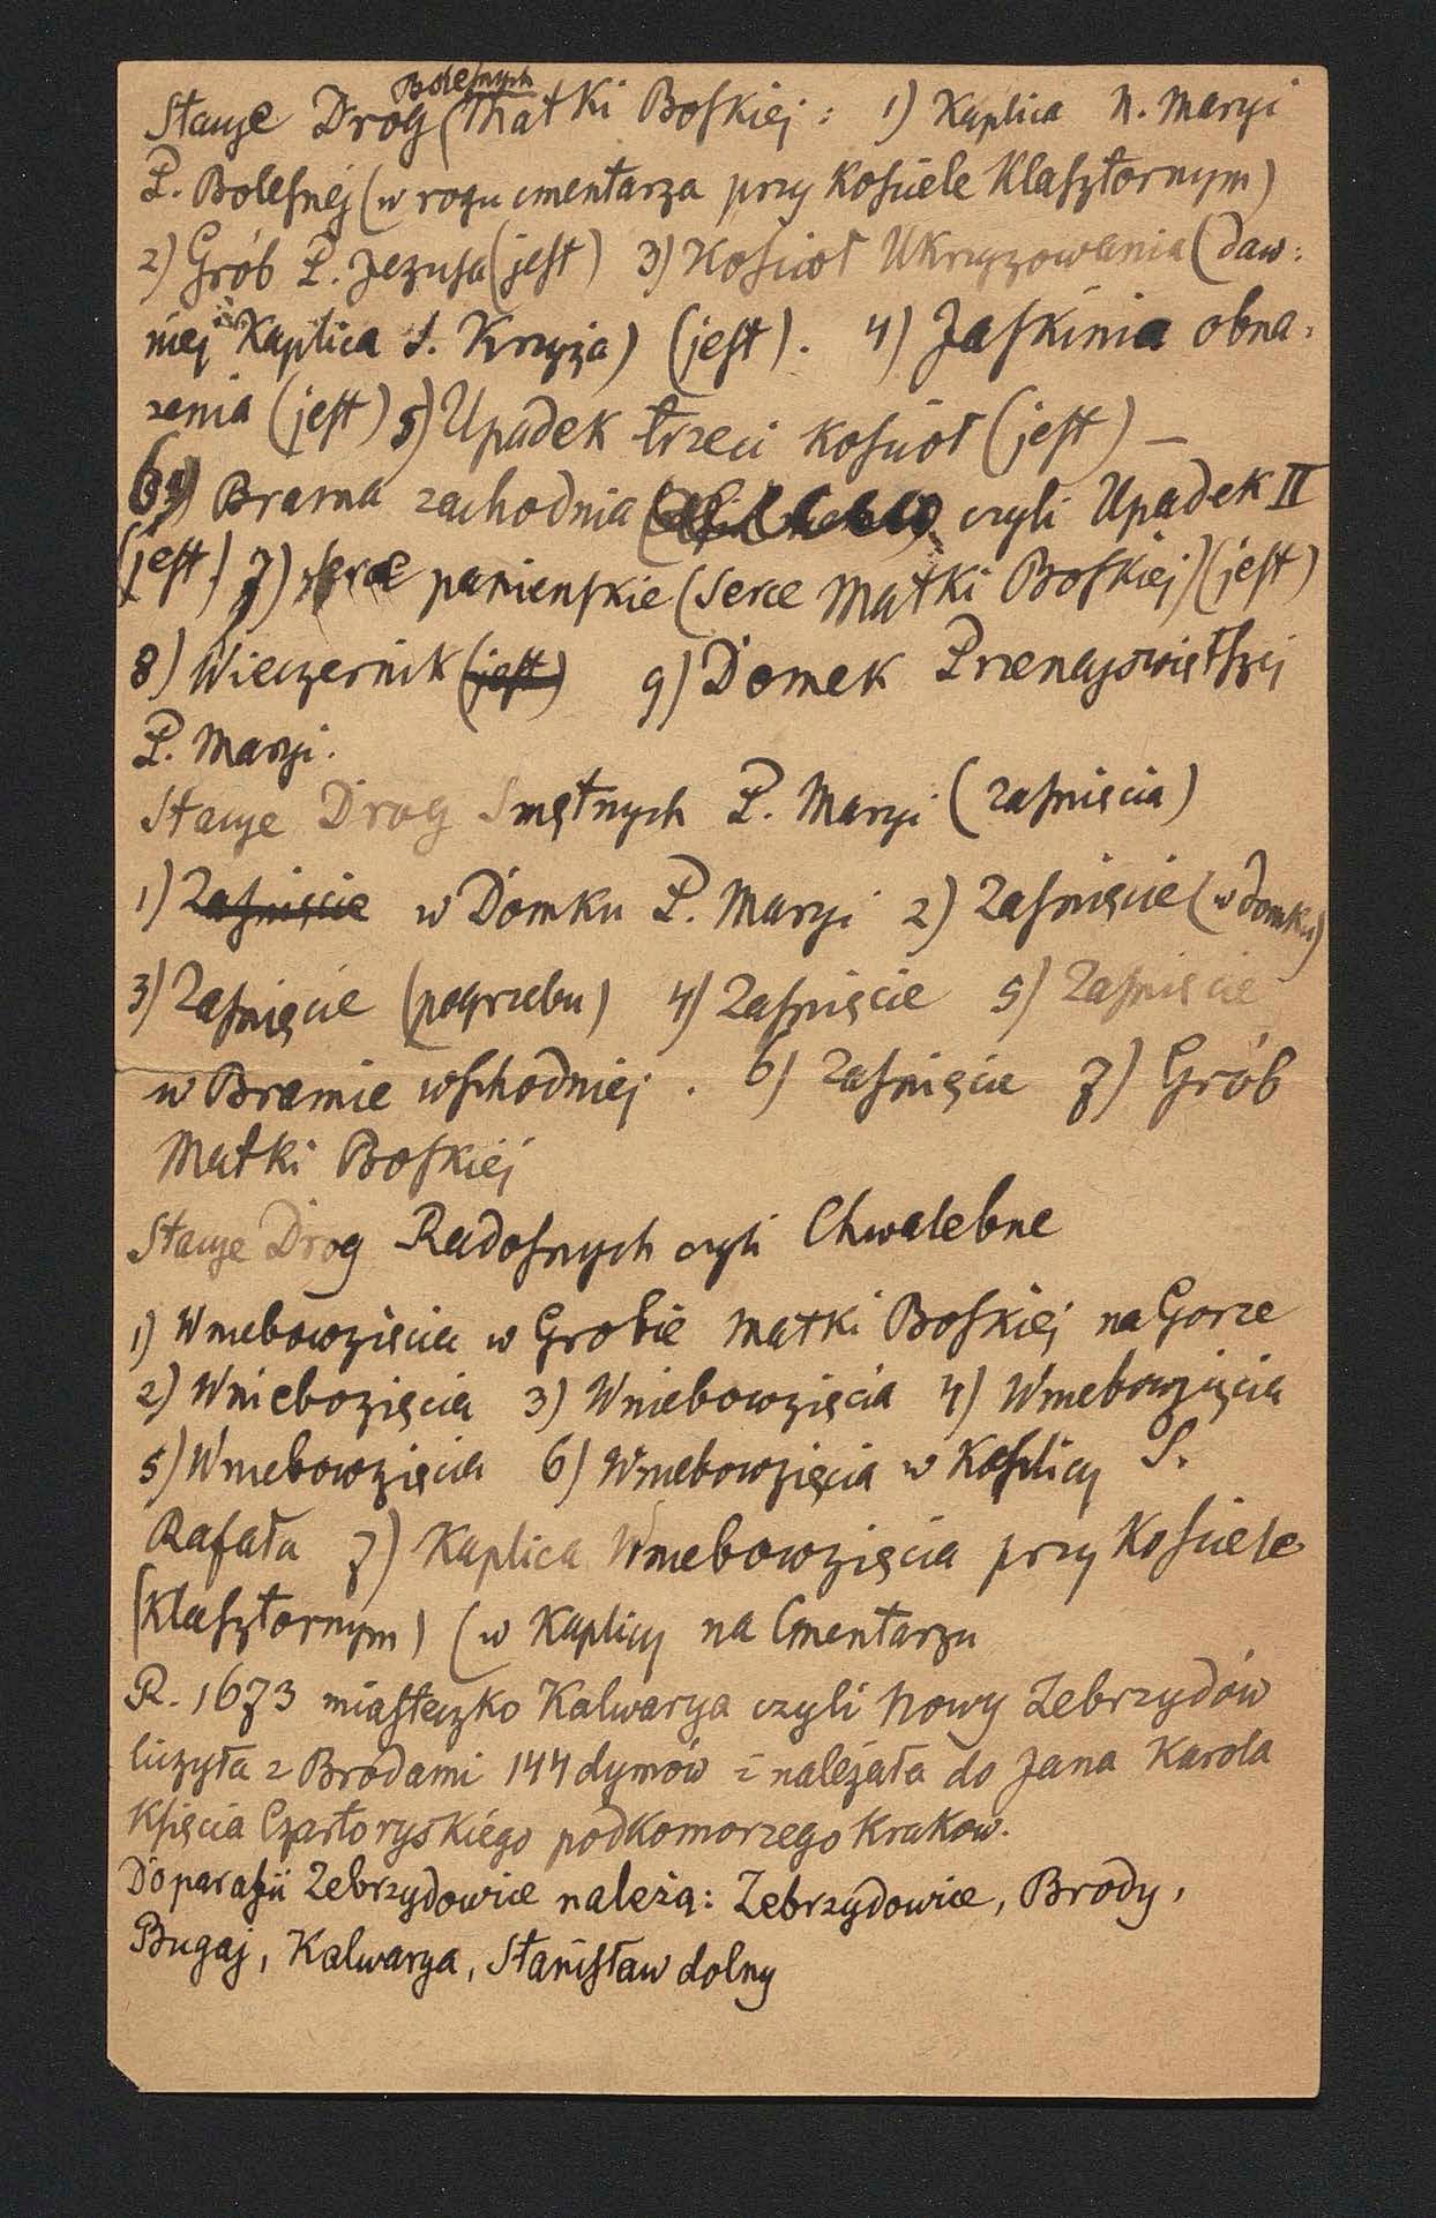 Bolesnych
Stacye Drog (Matki Boskiej: 1) Kaplica N. Maryi
P. Bolesnej (w rogu cmentarza przy Kościele Klasztornym)
2) Grób P. Jezusa (jest) 3) Kościoł Ukrzyzowania (daw:
niej Kaplica S. Krzyża) (jest). 4) Jaskinia obna,
zenia (jest) 5) Upadek trzeci Kościoł (jest) —
6) Brama zachodnia czyli Upadek II
(jest) 7) serce panienskie (Serce Matki Boskiej) (jest)
8) Wieczernik (jest) 9) Domek Przenajswiętszej
P. Maryi.
Stacye Drog Smętnych P. Maryi (zaśnięcia)
1) Zaśnięcie w Domku P. Maryi 2) Zaśnięcie (w domku)
3) Zaśnięcie (pogrzebu) 4) Zaśnięcie 5) Zaśnięcie
w Bramie wschodniej. 6) Zaśnięcie 7) Grób
Matki Boskiej
Stacye Drog Radosnych czyli Chwalebne
1) Wniebowzięcia w Grobie Matki Boskiej na Gorze
2) Wniebozięcia 3) Wniebowzięcia 4) Wniebowzięcia
5) Wniebowzięcia 6) Wniebowzięcia w Kaplicy S.
Rafała 7) Kaplica Wniebowzięcia przy Kościele
(Klasztornym) (w Kaplicy na Cmentarzu
R. 1673 miasteczko Kalwarya czyli Nowy Zebrzydów
liczyła z Brodami 144 dymów i należała do Jana Karola
Księcia Czartoryskiégo podkomorzego Krakow.
Do parafii Zebrzydowice należą: Zebrzydowice, Brody,
Bugaj, Kalwarya, Stanisław dolny